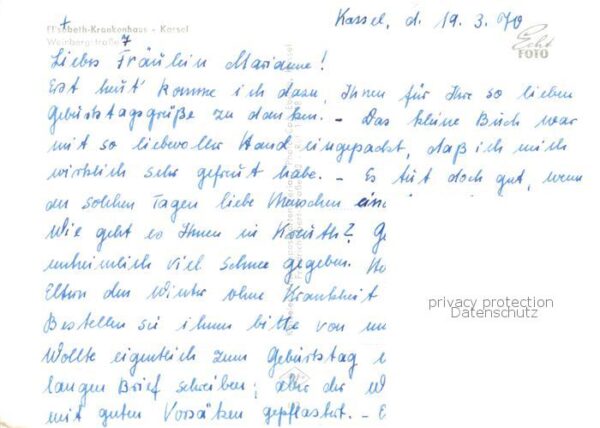 Kassel, d. 19.3.70
Elisabeth-Krankenhaus - Kassel
Weinbergstraße 7
Echt
FOTO
Liebes Fräulein Marianne!
Erst heut komme ich dazu, Ihnen für Ihre so lieben
Geburtstagsgrüße zu danken. - Das kleine Buch war
mit so liebevoller Hand eingepackt, daß ich mich
wirklich sehr gefreut habe. - Es tut doch gut, wenn
an solchen Tagen liebe Menschen
Wie geht es Ihnen in Kreuth?
unheimlich viel Schnee gegeben.
Eltern den Winter ohne Krankheit
Bestellen sie ihnen bitte von
Wollte eigentlich zum Geburtstag
langen Brief schreiben; aber der
mit guten Vorsätzen gepflastert. -
privacy protection
Datenschutz